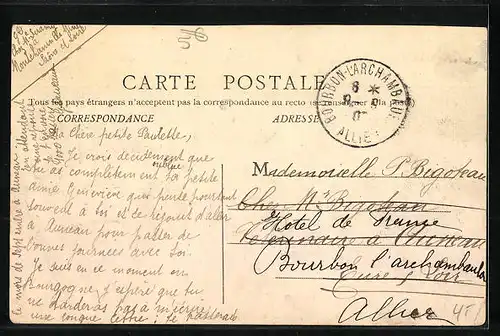 56
CARTE POSTALE
Tous les pays étrangers n'acceptent pas la correspondance au recto (se renseigner à la poste)
CORRESPONDANCE
ADRESSE
BOURBON-L'ARCHAMBAULT
ALLIER
Ma chère petite Paulette,
Je crois décidément que
tu as complètement oublié ta petite
amie Geneviève qui pense pourtant
souvent à toi et se réjouit d'aller
à Auneau pour passer de
bonnes journées avec toi.
Je suis en ce moment en
Bourgogne j'espère que tu
ne tarderas pas à m'écrire
une longue lettre; je
le mois de Septembre à Auneau
en attendant
Mademoiselle P. Bigoteau
Chez Mr Bigoteau
Hotel de France
Vétérinaire à Auneau
Bourbon l'archambault
Eure & Loir
Allier